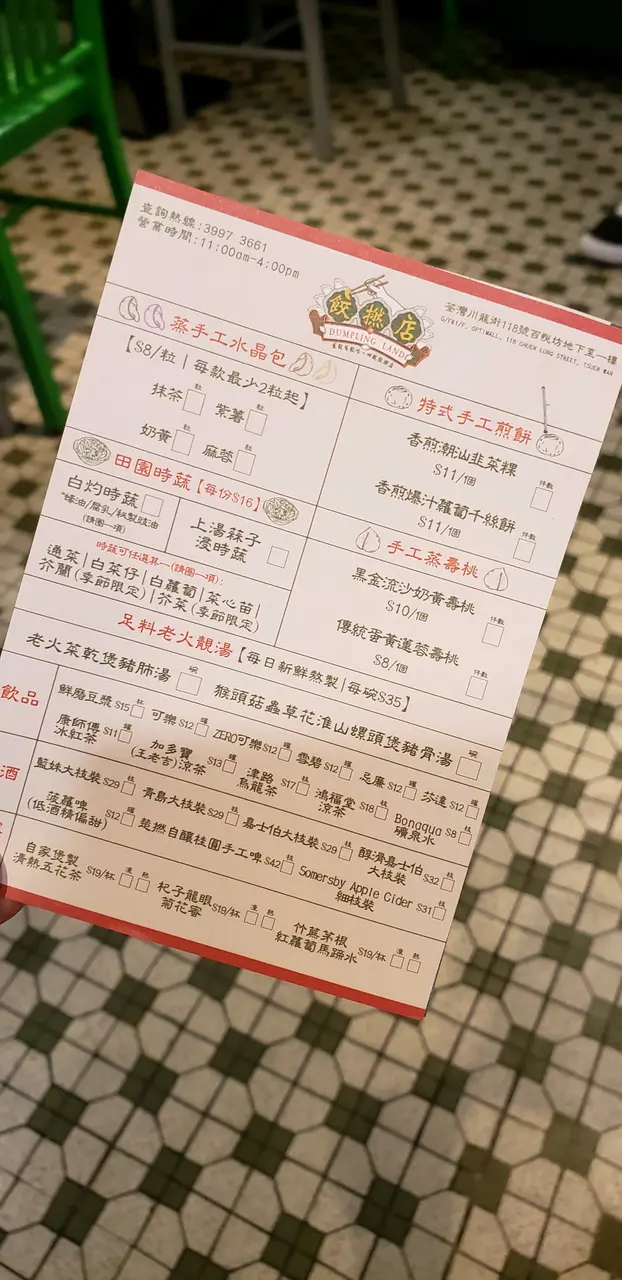 查詢熱線:3997 3661
營業時間:11:00am-4:00pm
餃撚店
DUMPLING LAND
荃灣川龍街118號百悅坊地下至一樓
G/F&1/F, OPTIMALL, 118 CHUEN LONG STREET, TSUEN WAN
蒸手工水晶包
【$8/粒 | 每款最少2粒起】
抹茶 粒 紫薯 粒
奶黃 粒 麻蓉 粒
特式手工煎餅
香煎潮汕韭菜粿
$11/個 件數
香煎爆汁蘿蔔千絲餅
$11/個 件數
田園時蔬【每份$16】
白灼時蔬
*蠔油/腐乳/秘製豉油
(請圈一項)
上湯蒜子
浸時蔬
時蔬可任選其一(請圈一項):
通菜|白菜仔|白蘿蔔|菜心苗|
芥蘭(季節限定)|芥菜(季節限定)
手工蒸壽桃
黑金流沙奶黃壽桃
$10/個 件數
傳統蛋黃蓮蓉壽桃
$8/個 件數
足料老火靚湯【每日新鮮熬製|每碗$35】
老火菜乾煲豬肺湯 碗
猴頭菇蟲草花淮山螺頭煲豬骨湯 碗
飲品
鮮磨豆漿 $15 可樂 $12 罐 ZERO可樂 $12 罐 雪碧 $12 罐 忌廉 $12 罐 芬達 $12 罐
康師傅
冰紅茶 $11
加多寶
(王老吉)涼茶 $13 罐
津路
烏龍茶 $17
鴻福堂
涼茶 $18
Bonaqua
礦泉水 $8
酒
藍妹大枝裝 $29 枝 青島大枝裝 $29 枝 嘉士伯大枝裝 $29 枝
醇滑嘉士伯
大枝裝 $32 枝
菠蘿啤
(低酒精偏甜) $12
楚撚自釀桂圓手工啤 $42 枝
Somersby Apple Cider
細枝裝 $31 枝
自家煲製
清熱五花茶 $19/杯 凍 熱
杞子龍眼
菊花蜜 $19/杯 凍 熱
竹蔗茅根
紅蘿蔔馬蹄水 $19/杯 凍 熱